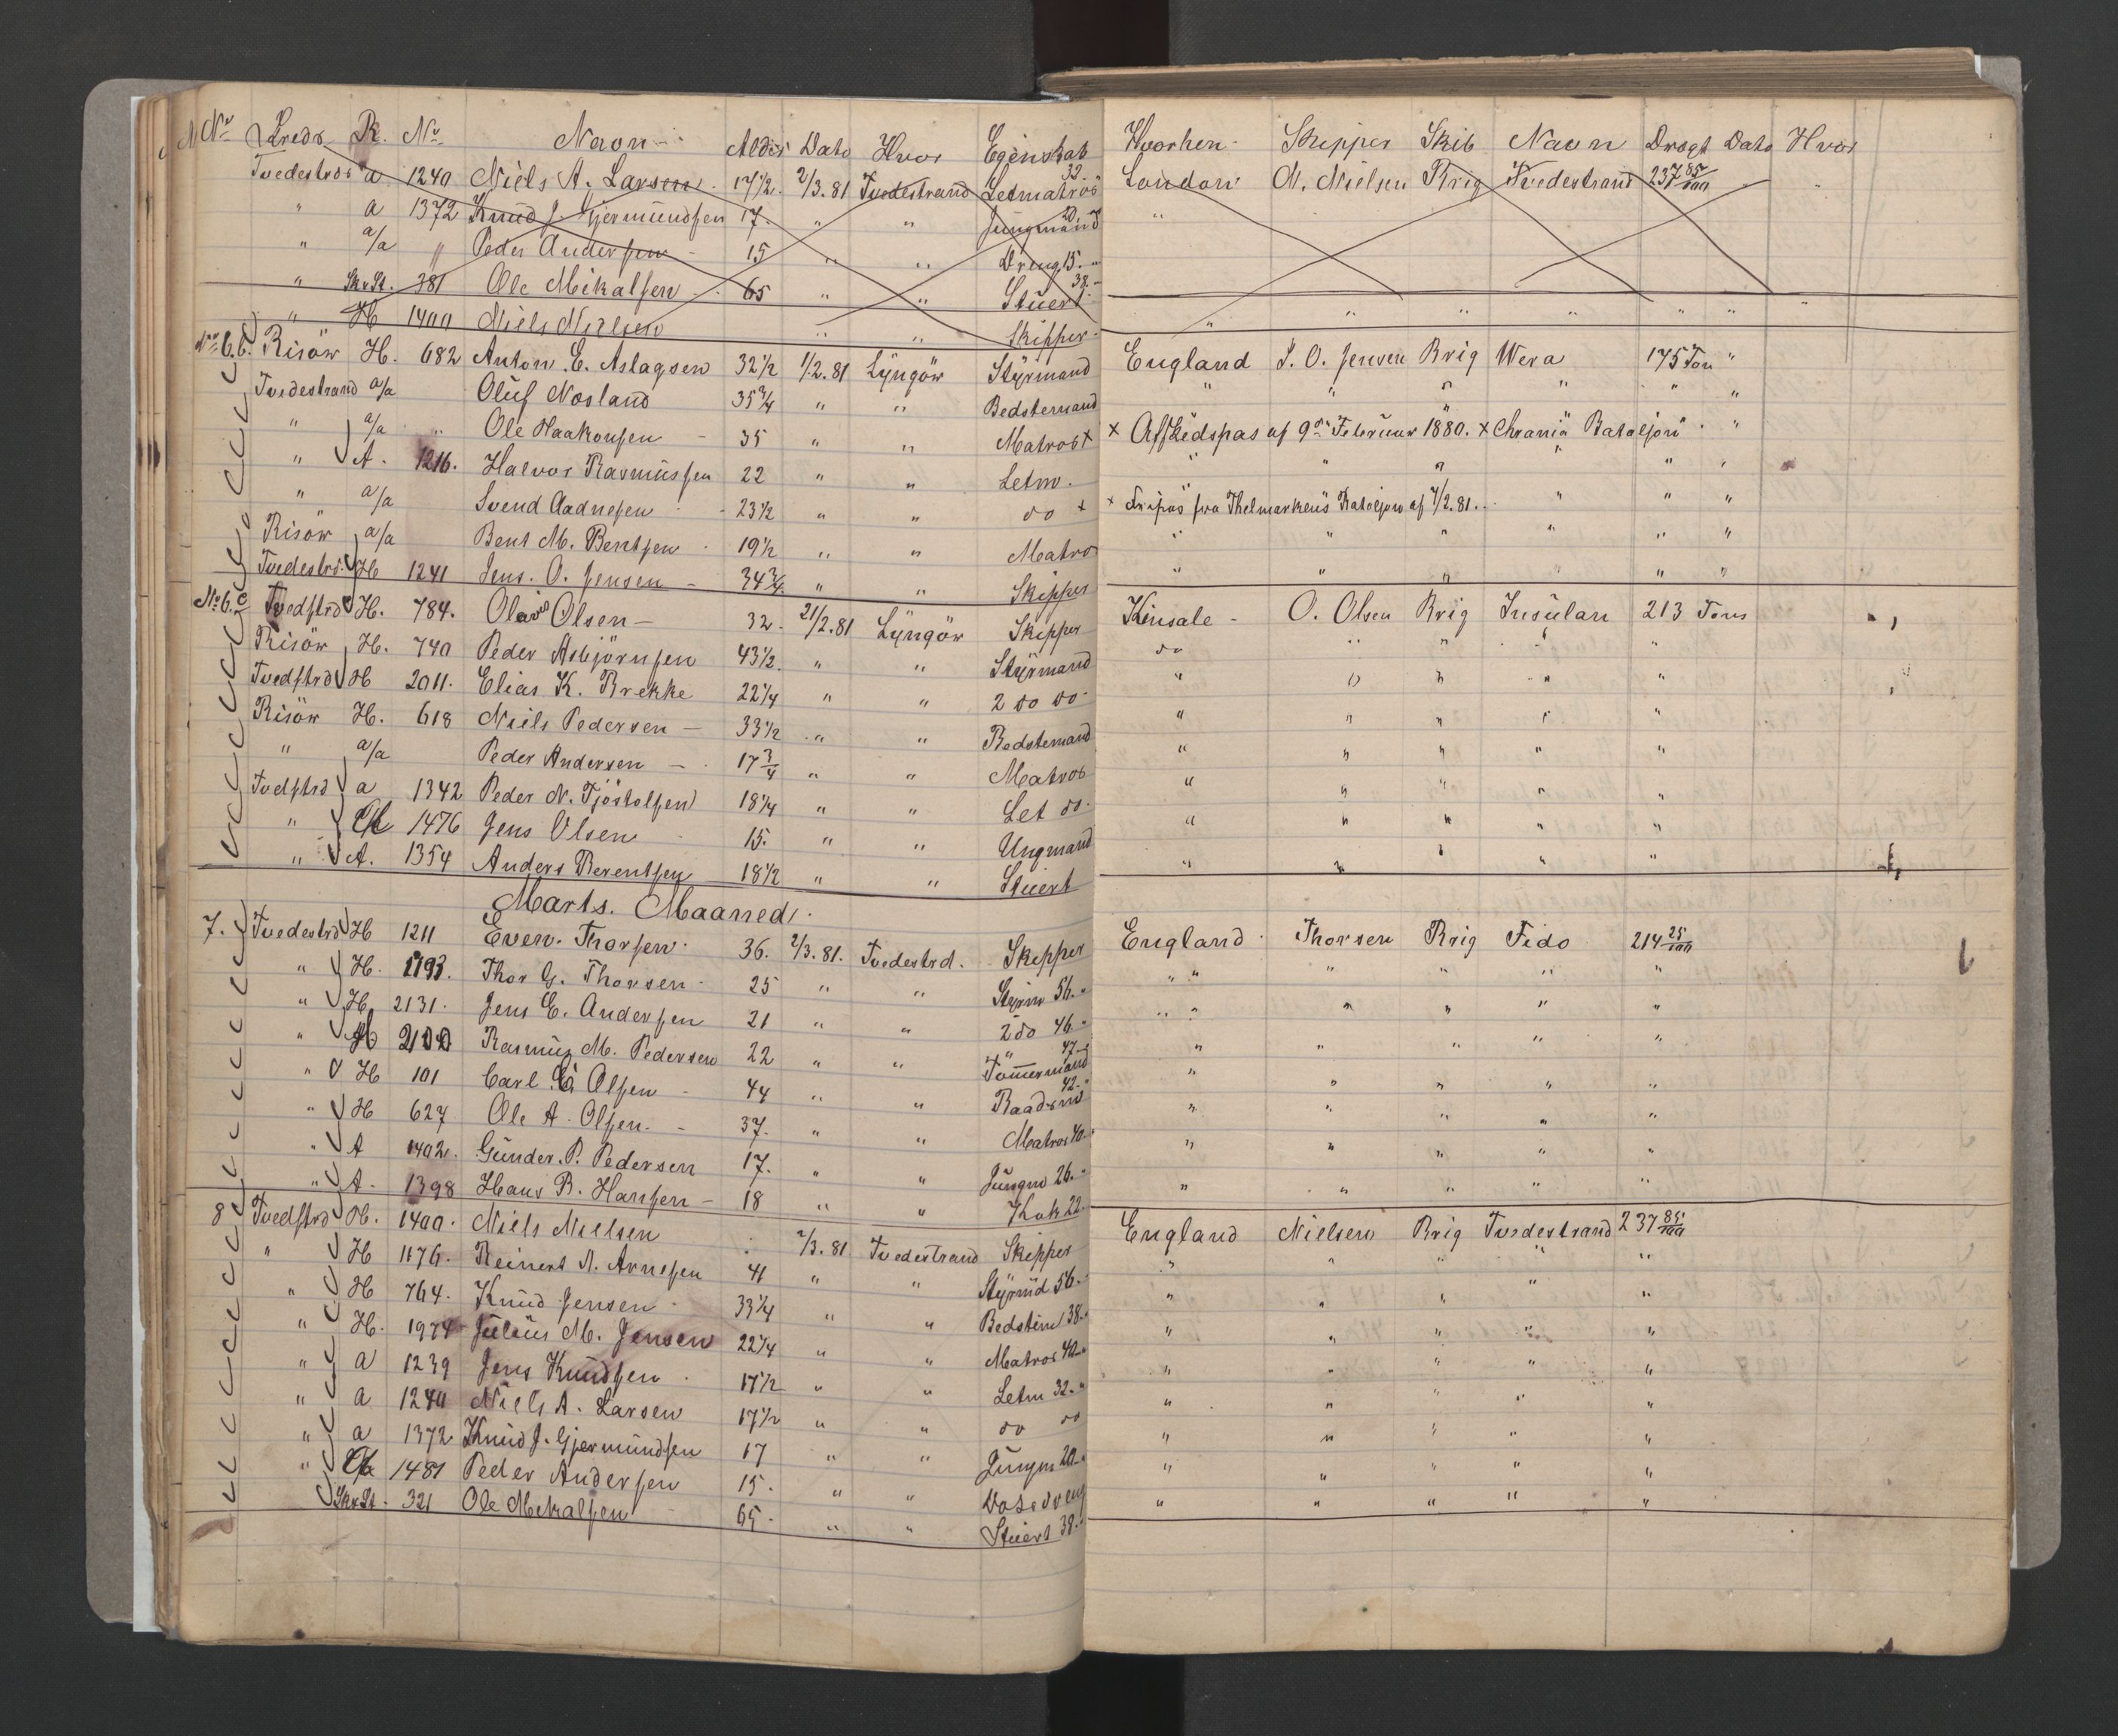 No Kreds R. No Navn Alder Dato Hvor Egenskab Hvorhen Skipper Skib Navn Drægt Dato Hvor
Tvedestrd a 1240 Niels A. Larsen 17 1/2 2/3.81 Tvedestrand Letmatros 32 London N. Nielsen Brig Tvedestrand 237 85/100
" a 1372 Knud J. Gjermundsen 17 " " Jungmand 20. "
" a/a " Peder Andersen 15 " " Dreng 15.
" Sk.St. 381 Ole Mikalsen 65 " " Stuert 38.
" H 1400 Niels Nielsen " " Skipper " " " " " "
No 6.b. Risör H. 682 Anton E. Aslagsen 32 1/2 1/2.81 Lyngör Styrmand England J. O. Jensen Brig Wera 175 Ton "
Tvedestrand a/a Oluf Nosland 35 3/4 " " Bedstemand " " " " " "
" a/a " Ole Haakonsen 35 " " Matros x x Afskedspas af 9de Februar 1880. x Chrania Bataljon "
" A. 1216. Halvor Rasmussen 22 " " Letm. " " " " " "
" a/a Svend Aadnesen 23 1/2 " " do x x Fripas fra Thelmarkens Bataljon af 7/2.81. " " "
Risör a/a Bent M. Bentsen 19 1/2 " " Matros " " " " " "
Tvedestrd. H 1241 Jens. O. Jensen 34 3/4 " " Skipper " " " " "
No 6.c Tvedstrd H. 784. Olavs Olsen 32. 21/2.81 Lyngör Skipper Kinsale O. Olsen Brig Insulan 213 Tons
Risör H. 740 Peder Asbjörnsen 43 1/2 " " Styrmand do " " " "
Tvedstrd H 2011. Elias K. Brekke 22 1/4 " " 2 do do " " " " "
Risör H. 618 Niels Pedersen 33 1/2 " " Bedstemand " " " " "
" a/a Peder Andersen 17 3/4 " " Matros " " " " "
Tvdstrd a 1342 Peder N. Tjöstolsen 18 1/4 " " Let do. " " " " "
" 1476 Jens Olsen 15. " " Ungmand " " " " "
" A. 1354 Anders Berentsen 18 1/2 " " Stuert " " " " "
Marts. Maaned.
7. Tvedestrd H 1211 Even. Thorsen 36. 2/3.81. Tvedestrd. Skipper England Thorsen Brig Fido 214 25/100
" H. 1193. Thor G. Thorsen 25 " " Styrm 56. " " " " "
" H. 2131. Jens E. Andersen 21 " " 2 do 46. " " " " "
" H 2100 Rasmus M. Pedersen 22 " " Tömmermand 47 " " " " "
" H 101 Carl Olsen 44 " " Raadsm 42. " " " " "
" H 627 Ole A. Olsen. 37. " " Matros 40. " " " " "
" A 1402. Gunder. P. Pedersen 17. " " Jungm 26. " " " " "
" A. 1398 Hans B. Hansen 18 " " Kok 22. " " " " "
8 Tvedstrd H. 1400. Niels Nielsen 2/3.81 Tvedestrand Skipper England Nielsen Brig Tvedestrand 237 85/100
" H 1176. Reinert A. Arnesen 41 " " Styrmd 56. " " " " "
" H 764. Knud Jensen 33 1/4 " " Bedstem 38. " " " " "
" H. 1974 Julius M. Jensen 22 1/4 " " Matros 40 " " " " "
" a 1239 Jens Knudsen 17 1/2 " " Letm 32. " " " " "
" a 1240 Niels A. Larsen 17 1/2 " " do do " " " " "
" a 1372 Knud J. Gjermundsen 17 " " Jungm 20 " " " " "
" 1481 Peder Andersen 15. " " " " " " "
Sk.St. 321 Ole Mekalsen 65. " " Stuert 38. " " " " "